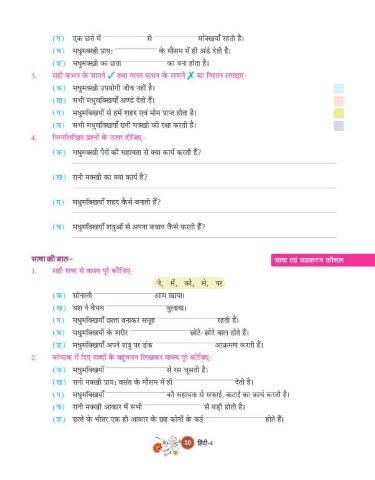 (ग) एक छत्ते में से मक्खियाँ रहती हैं।
(घ) मधुमक्खी प्राय: के मौसम में ही अंडे देती हैं।
(ङ) मधुमक्खी का छत्ता का बना होता है।
3. सही कथन के सामने ✓ तथा गलत कथन के सामने ✗ का निशान लगाइए-
(क) मधुमक्खी उपयोगी जीव नहीं है।
(ख) सभी मधुमक्खियाँ अण्डे देती हैं।
(ग) मधुमक्खियों से हमें शहद एवं मोम प्राप्त होता है।
(घ) सभी मधुमक्खियाँ रानी मक्खी की रक्षा करती है।
4. निम्नलिखित प्रश्नों के उत्तर दीजिए-
(क) मधुमक्खी पैरों की सहायता से क्या कार्य करती हैं?
(ख) रानी मक्खी का क्या कार्य है?
(ग) मधुमक्खियाँ शहद कैसे बनाती हैं?
(घ) मधुमक्खियाँ शत्रुओं से अपना बचाव कैसे करती हैं?
भाषा की बात–
भाषा एवं व्याकरण कौशल
1. सही शब्द से वाक्य पूरे कीजिए-
ने, में, को, से, पर
(क) सोनाली आम खाया।
(ख) यश ने वैभव बुलाया।
(ग) मधुमक्खियाँ छत्ता बनाकर समूह रहती हैं।
(घ) मधुमक्खियों के शरीर छोटे-छोटे बाल होते हैं।
(ङ) मधुमक्खियाँ अपने शत्रु पर डंक आक्रमण करती हैं।
2. कोष्ठक में दिए शब्दों के बहुवचन लिखकर वाक्य पूरे कीजिए-
(क) मधुमक्खियाँ से रस चूसती हैं।
(ख) रानी मक्खी प्राय: वसंत के मौसम में ही देती हैं।
(ग) मधुमक्खियाँ की सहायता से सफाई, कटाई का कार्य करती हैं।
(घ) रानी मक्खी आकार में सभी से बड़ी होती है।
(ङ) छत्ते के भीतर एक ही आकार के छह कोनों के कई होते हैं।
30 हिंदी-4